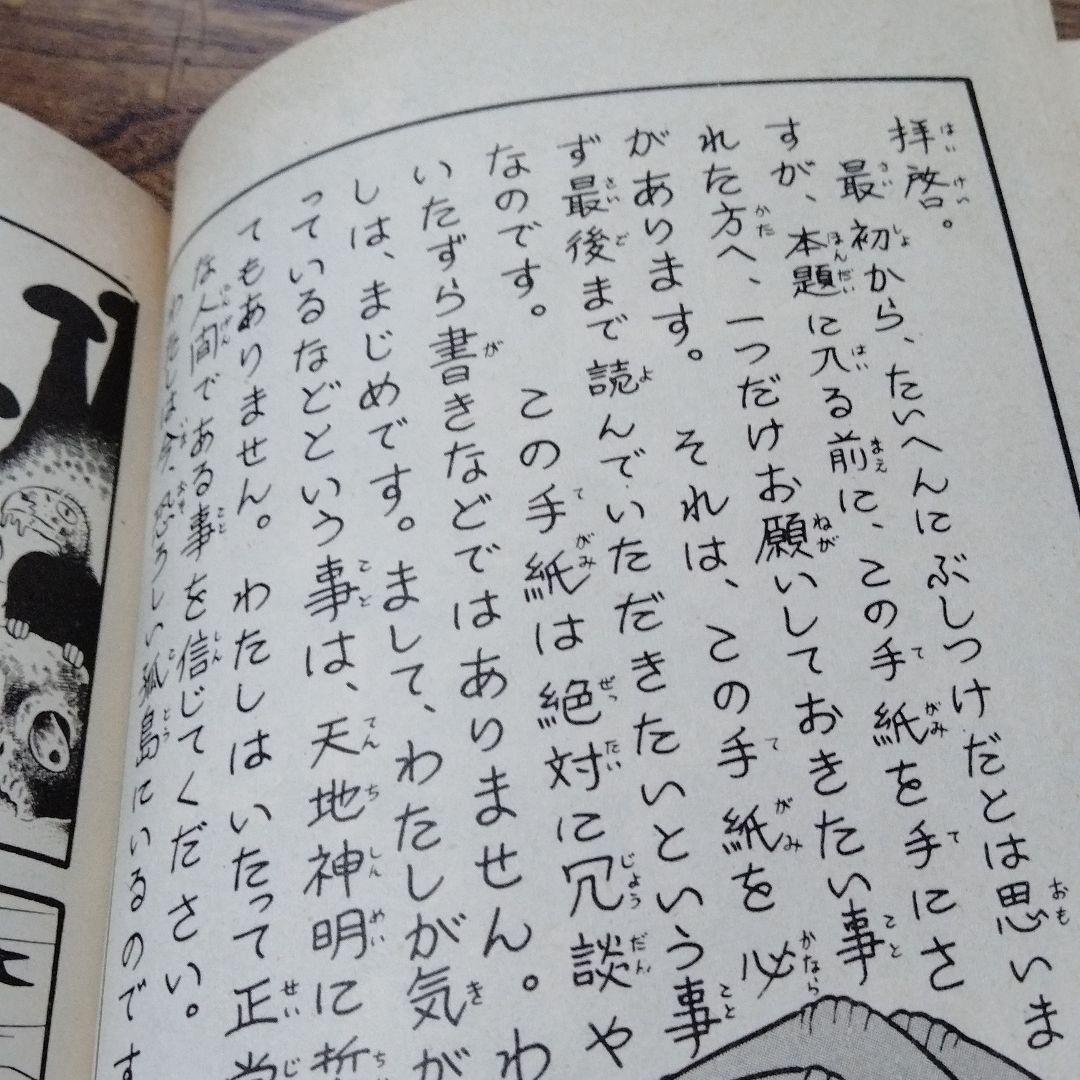 拝啓。
最初から、たいへんにぶしつけだとは思いま
すが、本題に入る前に、この手紙を手にさ
れた方へ、一つだけお願いしておきたい事
があります。それは、この手紙を必
ず最後まで読んでいただきたいという事
なのです。この手紙は絶対に冗談や
いたずら書きなどではありません。わ
しは、まじめです。まして、わたしが気が
っているなどという事は、天地神明に誓
てもありません。わたしはいたって正常
な人間である事を信じてください。
わたしは今、恐ろしい孤島にいるのです